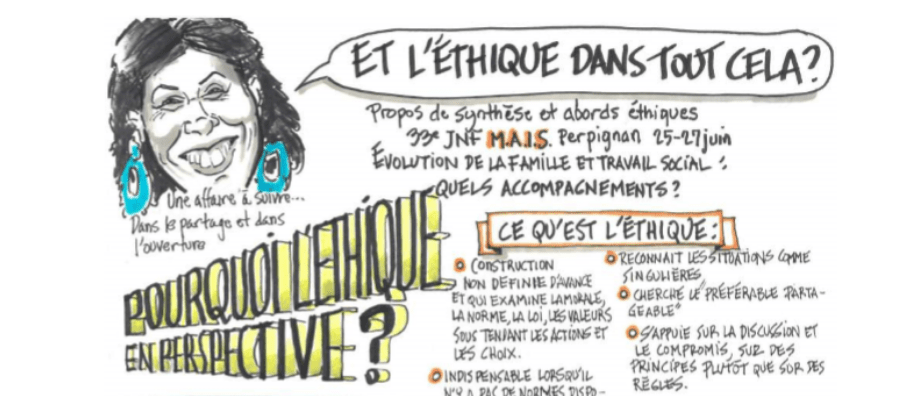 ET L'ÉTHIQUE DANS TOUT CELA?
Propos de synthèse et abords éthiques
33e JNF M.A.I.S. Perpignan 25-27 juin
ÉVOLUTION DE LA FAMILLE ET TRAVAIL SOCIAL :
QUELS ACCOMPAGNEMENTS ?
Une affaire à suivre...
Dans le partage et dans
l'ouverture
POURQUOI L'ETHIQUE
EN PERSPECTIVE ?
CE QU'EST L'ÉTHIQUE :
CONSTRUCTION
NON DÉFINIE D'AVANCE
ET QUI EXAMINE LA MORALE,
LA NORME, LA LOI, LES VALEURS
SOUS TENDANT LES ACTIONS ET
LES CHOIX.
INDISPENSABLE LORSQU'IL
N'Y A PAS DE NORMES DISPO-
RECONNAIT LES SITUATIONS COMME
SINGULIÈRES
CHERCHE LE "PRÉFÉRABLE PARTA-
GEABLE"
S'APPUIE SUR LA DISCUSSION ET
LE COMPROMIS, SUR DES
PRINCIPES PLUTÔT QUE SUR DES
RÈGLES.